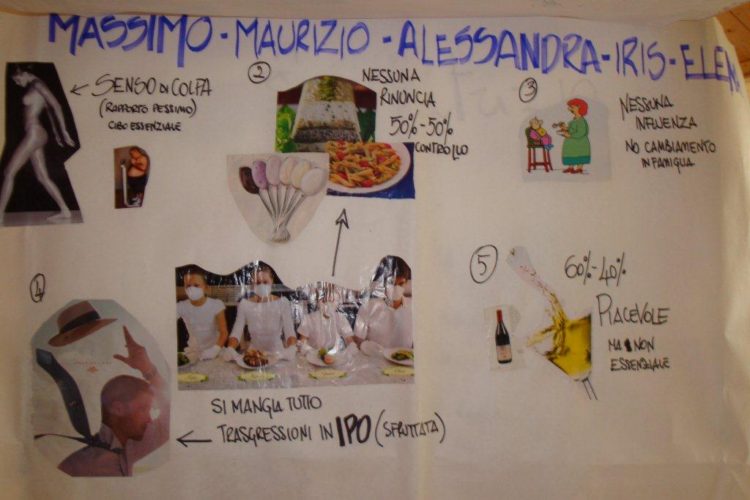 MASSIMO - MAURIZIO - ALESSANDRA - IRIS - ELEN
← SENSO DI COLPA
(RAPPORTO PESSIMO)
CIBO ESSENZIALE
2
NESSUNA
RINUNCIA
50%-50%
CONTROLLO
3
NESSUNA
INFLUENZA
NO CAMBIAMENTO
IN FAMIGLIA
4
SI MANGIA TUTTO
← TRASGRESSIONI IN IPO (SFRUTTATA)
5
60%-40%
PIACEVOLE
MA NON
ESSENZIALE